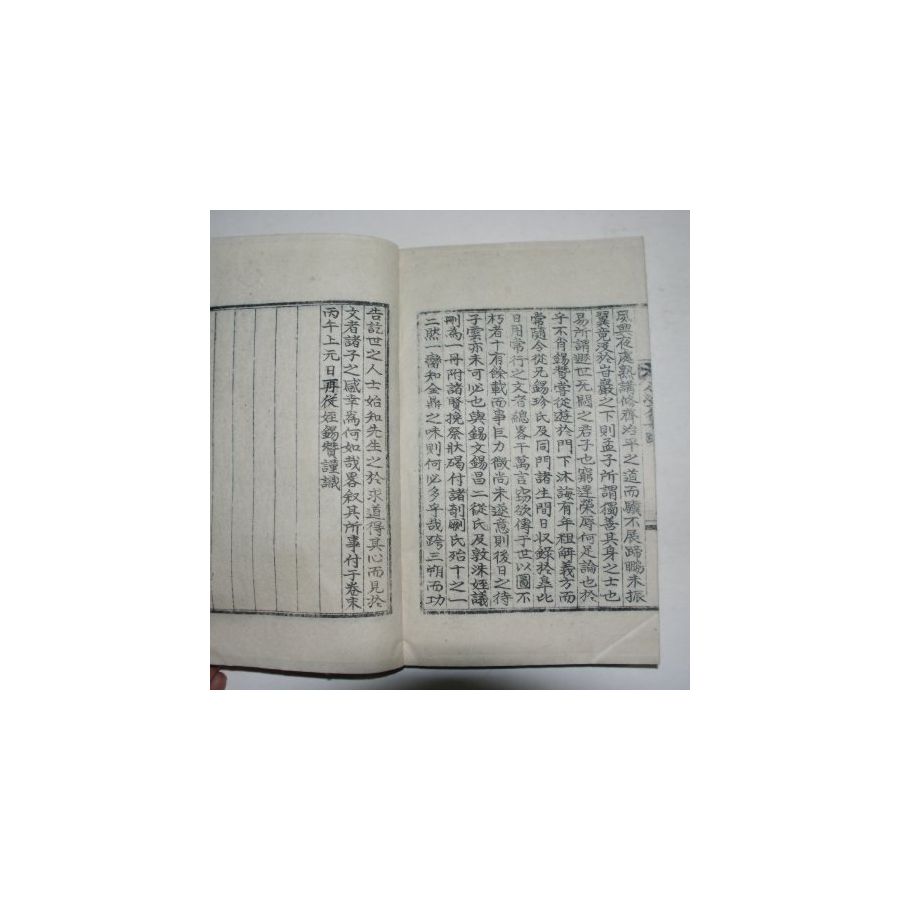 夙興夜處熟講修齊治平之道而驥不展蹄鵬未振
翼竟沒於岩巖之下則孟子所謂獨善其身之士也
易所謂遯世无悶之君子也窮達榮辱何足論也於
乎不肖錫贊嘗從遊於門下沐誨有年粗解義方而
常隨今從兄錫珍氏及同門諸生間日收錄於皐比
日用常行之文者總畧千萬言窃欲傳于世以圖不
朽者十有餘載而事巨力微尚未遂意則後日之待
子雲亦未可必也與錫文錫昌二從氏及敦洙姪議
刪為一冊附諸賢挽祭狀碣付諸剞劂氏殆十之一
二然一臠知全鼎之味則何必多乎哉跨三朔而功
告訖世之人士始知先生之於求道得其心而見於
文者諸子之感幸為何如哉畧叙其所事付于卷末
丙午上元日再從姪錫贊謹識